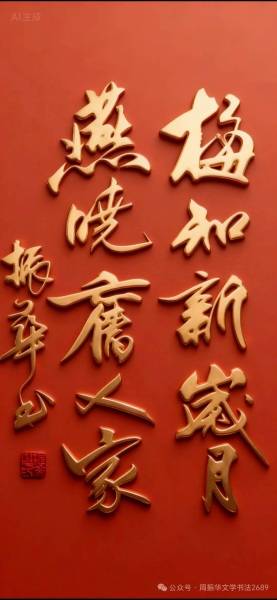 AI生成
梅知新歲月
燕曉舊人家
振華书
公众号 · 周振华文学书法2689